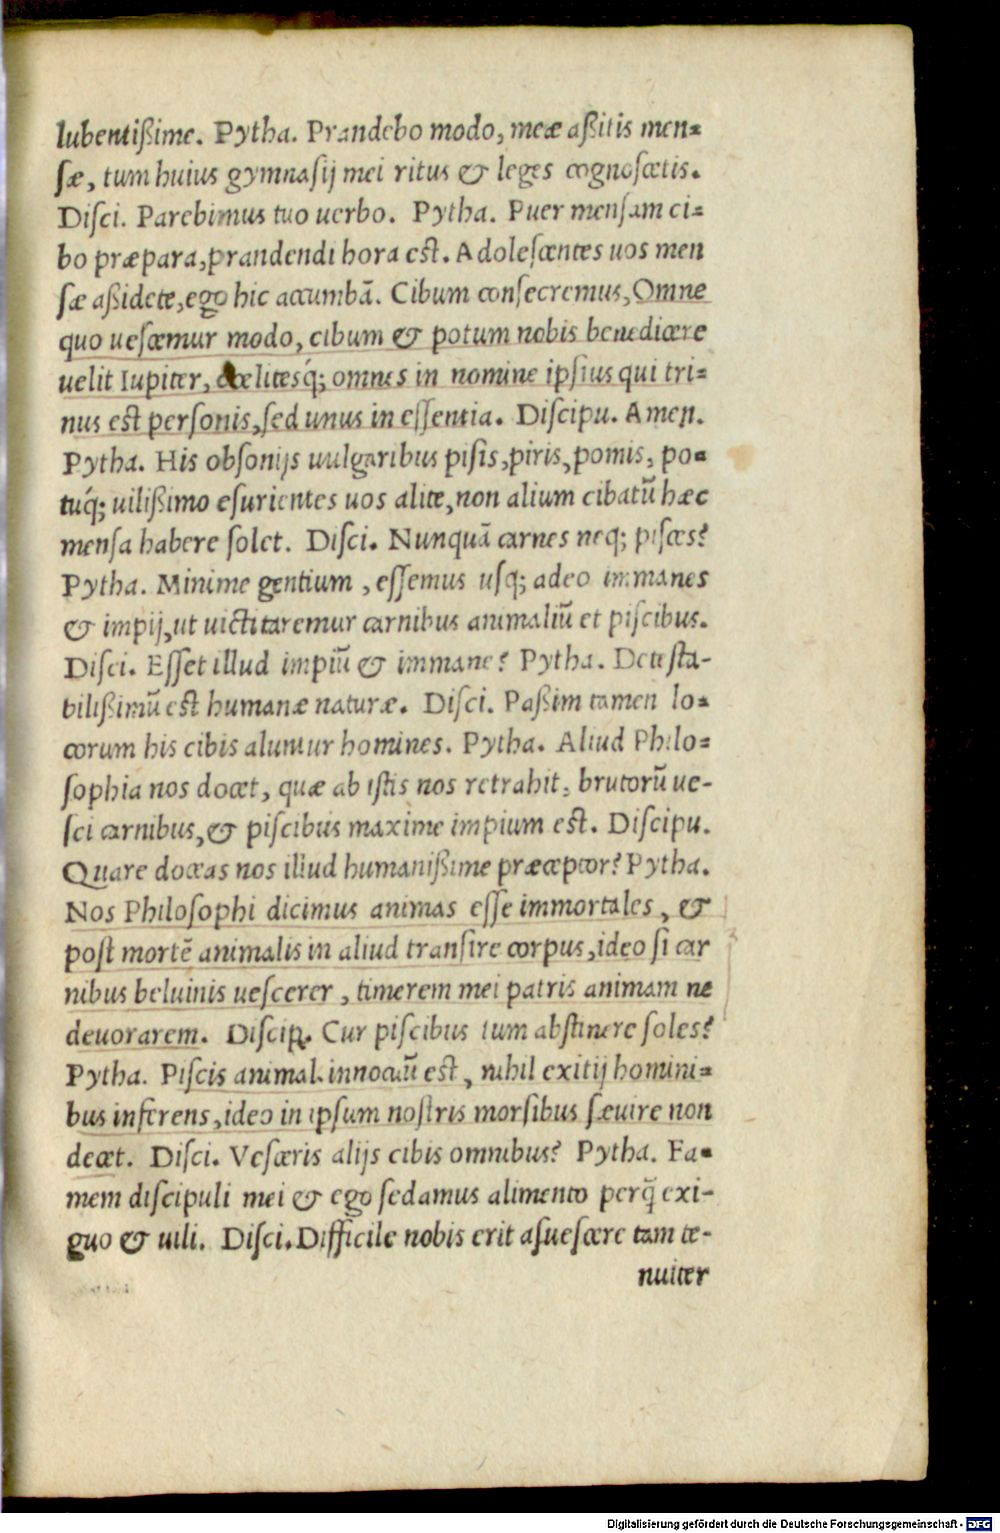 lubentißime. Pytha. Prandebo modo, meæ aßitis men=
ſæ, tum huius gymnaſij mei ritus & leges cognoſcetis.
Diſci. Parebimus tuo uerbo. Pytha. Puer menſam ci=
bo præpara, prandendi hora eſt. Adoleſcentes uos men
ſæ aßidete, ego hic accumbā. Cibum conſecremus, Omne
quo ueſcemur modo, cibum & potum nobis benedicere
uelit Iupiter, cœlitesq́; omnes in nomine ipſius qui tri=
nus eſt perſonis, ſed unus in eſſentia. Diſcipu. Amen.
Pytha. His obſonijs uulgaribus piſis, piris, pomis, po=
tuq́; uilißimo eſurientes uos alite, non alium cibatū hæc
menſa habere ſolet. Diſci. Nunquā carnes neq; piſces?
Pytha. Minime gentium, eſſemus uſq; adeo immanes
& impij, ut uictitaremur carnibus animaliū et piſcibus.
Diſci. Eſſet illud impiū & immane? Pytha. Deteſta-
bilißimū eſt humanæ naturæ. Diſci. Paßim tamen lo=
corum his cibis aluntur homines. Pytha. Aliud Philo=
ſophia nos docet, quæ ab iſtis nos retrahit, brutorū ue-
ſci carnibus, & piſcibus maxime impium eſt. Diſcipu.
Quare doceas nos illud humanißime præceptor? Pytha.
Nos Philoſophi dicimus animas eſſe immortales, &
poſt mortē animalis in aliud tranſire corpus, ideo ſi car
nibus beluinis ueſcerer, timerem mei patris animam ne
deuorarem. Diſcip. Cur piſcibus tum abſtinere ſoles?
Pytha. Piſcis animal innocuū eſt, nihil exitij homini=
bus inferens, ideo in ipſum noſtris morſibus ſæuire non
decet. Diſci. Veſceris alijs cibis omnibus? Pytha. Fa=
mem diſcipuli mei & ego ſedamus alimento perq̄ exi-
guo & uili. Diſci. Difficile nobis erit aſueſcere tam te-
nuiter
Digitalisierung gefördert durch die Deutsche Forschungsgemeinschaft - DFG